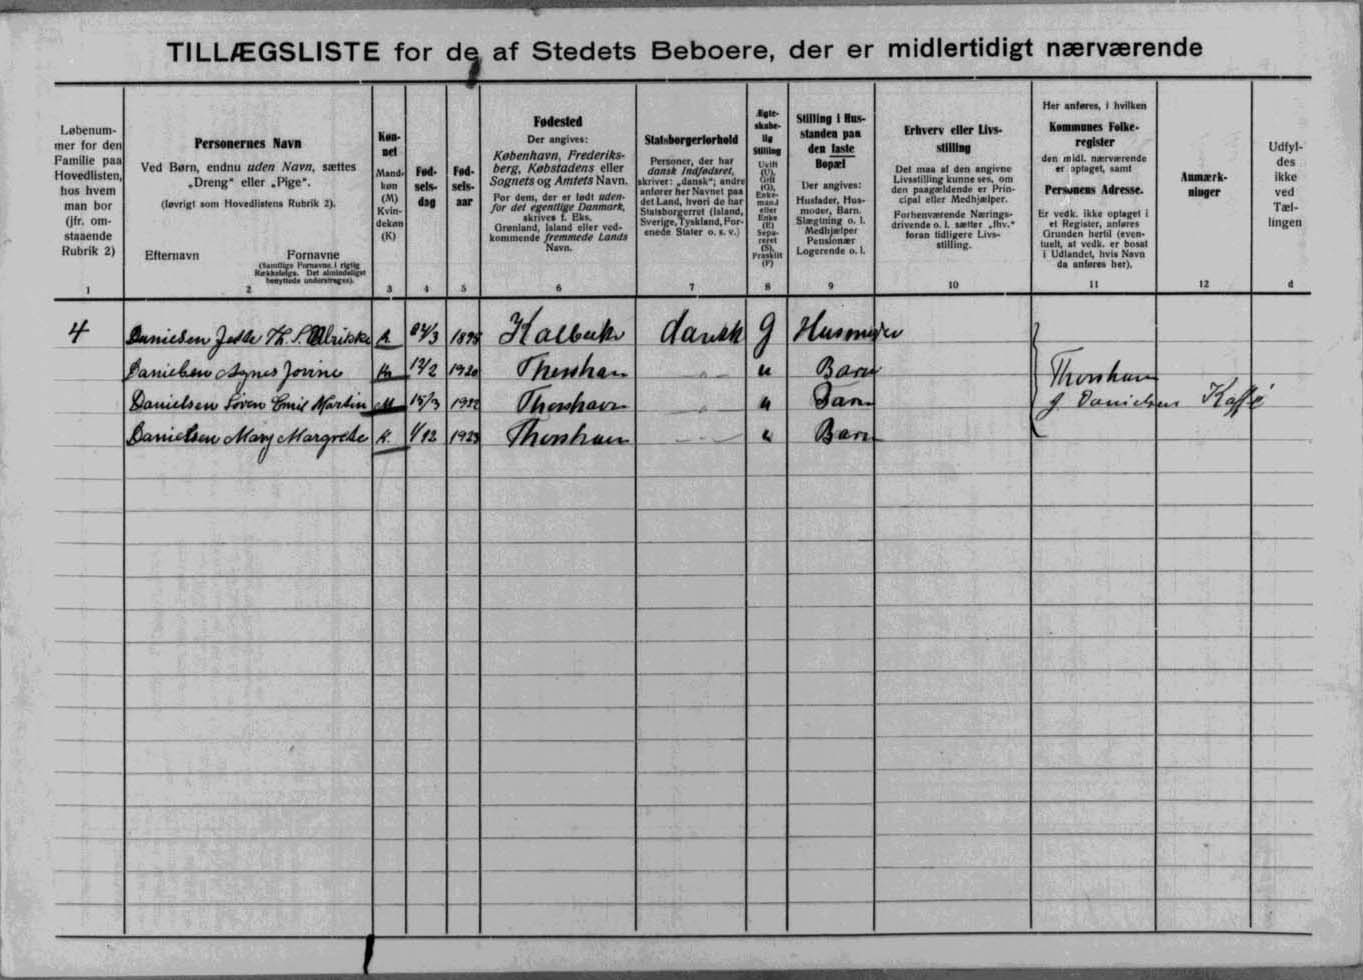 TILLÆGSLISTE for de af Stedets Beboere, der er midlertidigt nærværende
Løbenum-
mer for den
Familie paa
Hovedlisten,
hos hvem
man bor
(jfr. om-
staaende
Rubrik 2)
1
Personernes Navn
Ved Børn, endnu uden Navn, sættes
„Dreng“ eller „Pige“.
(Iøvrigt som Hovedlistens Rubrik 2).
Efternavn Fornavne
(Samtlige Fornavne i rigtig
Rækkefølge. Det almindeligst
benyttede understreges).
2
Køn-
net
Mand-
køn
(M)
Kvin-
dekøn
(K)
3
Fød-
sels-
dag
4
Fød-
sels-
aar
5
Fødested
Der angives:
København, Frederiks-
berg, Købstadens eller
Sognets og Amtets Navn.
For dem, der er født uden-
for det egentlige Danmark,
skrives f. Eks.
Grønland, Island eller ved-
kommende fremmede Lands
Navn.
6
Statsborgerforhold
Personer, der har
dansk Indfødsret,
skriver: „dansk“; andre
anfører her Navnet paa
det Land, hvori de har
Statsborgerret (Island,
Sverige, Tyskland, For-
enede Stater o. s. v.)
7
Ægte-
skabe-
lig
Stilling
Ugift
(U),
Gift
(G),
Enke-
mand
eller
Enke
(E)
Sepa-
reret
(S),
Fraskilt
(F)
8
Stilling i Hus-
standen paa
den faste
Bopæl
Der angives:
Husfader, Hus-
moder, Barn,
Slægtning o. l.
Medhjælper
Pensionær
Logerende o. l.
9
Erhverv eller Livs-
stilling
Det maa af den angivne
Livsstilling kunne ses, om
den paagældende er Prin-
cipal eller Medhjælper.
Forhenværende Nærings-
drivende o. l. sætter „fhv.“
foran tidligere Livs-
stilling.
10
Her anføres, i hvilken
Kommunes Folke-
register
den midl. nærværende
er optaget, samt
Personens Adresse.
Er vedk. ikke optaget i
et Register, anføres
Grunden hertil (even-
tuelt, at vedk. er bosat
i Udlandet, hvis Navn
da anføres her).
11
Anmærk-
ninger
12
Udfyl-
des
ikke
ved
Tæl-
lingen
d
4 Danielsen K. 1898 dansk G Husmoder
Danielsen Agnes Jovine K 12/2 1920 Thorshavn „ u Barn
Danielsen Søren Emil Martin M 15/3 1922 Thorshavn „ u Barn
Danielsen Mary Margrethe K. 1/12 1923 Thorshavn „ u Barn
Thorshavn
J Danielsens Kaffé